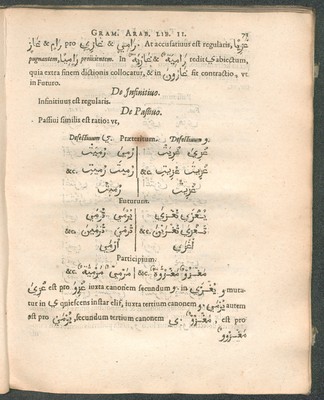 GRAM. ARAB. LIB. II. 77
رَامٍ & غَازٍ pro رَامِيٌ & غَازِيٌ. At accusatiuus est regularis,
pugnantem, proiicientem. In غَازِيَةٌ & رَامِيَةٌ redit ي abiectum,
quia extra finem dictionis collocatur, & in غَازُونَ sit contractio, vt
in Futuro.
De Infinitiuo.
Infinitiuus est regularis.
De Passiuo.
Passiui similis est ratio: vt,
Defectiuum ي. Præteritum. Defectiuum و.
غُزِيَ غُزِيَتْ رُمِيَ رُمِيَتْ
&c. &c.
Futurum.
يُغْزَى تُغْزَى يُرْمَى تُرْمَى
&c. &c.
أُغْزَى أُرْمَى
Participium.
مَغْزُوٌّ مَغْزُوَّةٌ &c. مَرْمِيٌّ مَرْمِيَّةٌ &c.
غُزِيَ est pro غُزِوَ iuxta canonem secundum و. in يُغْزَى و muta-
tur in ي quiescens instar elif, iuxta tertium canonem و; يُرْمَى autem
est pro يُرْمَيُ, secundum tertium canonem ي. مَغْزُوٌّ, est pro
مَغْزُووٌ